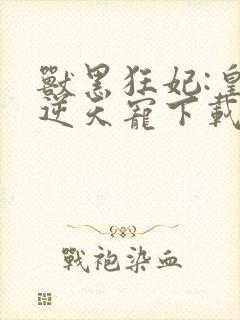 獸黑狂妃:皇
逆天寵下載
戰袍染血